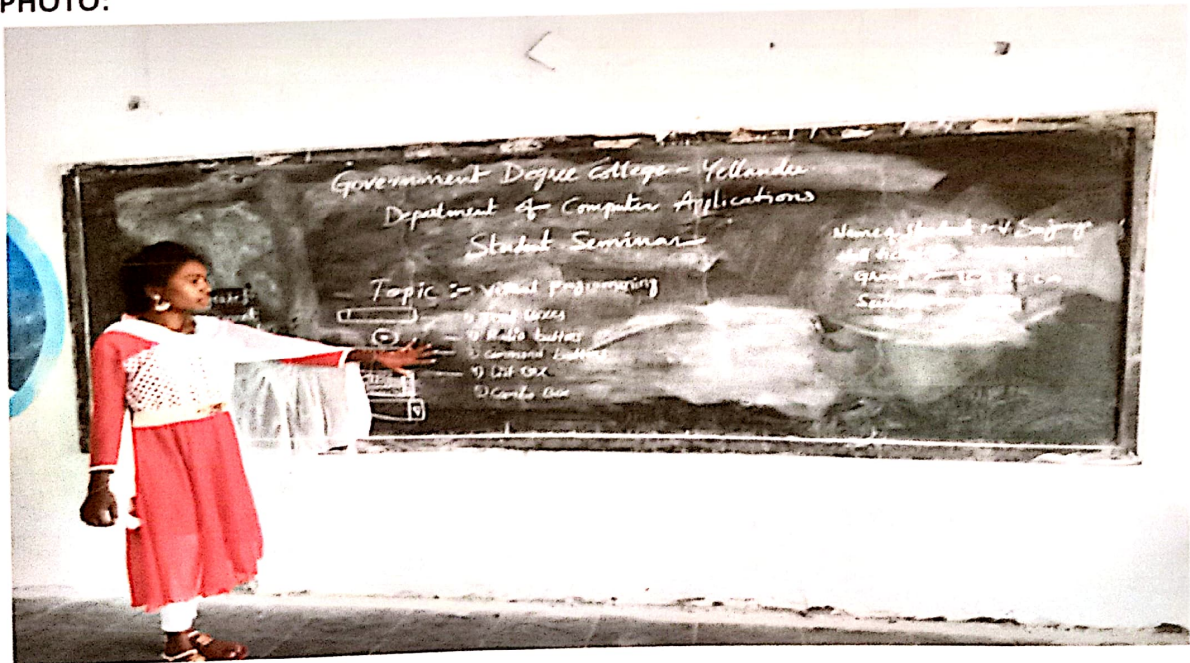 PHOTO:
Government Degree College - Yellandu
Department of Computer Applications
Student Seminar
Topic :- Visual programming
1) Text boxes
2) Radio buttons
3) Command buttons
4) List Box
5) Combo Box
Name of Student :- V.
Group